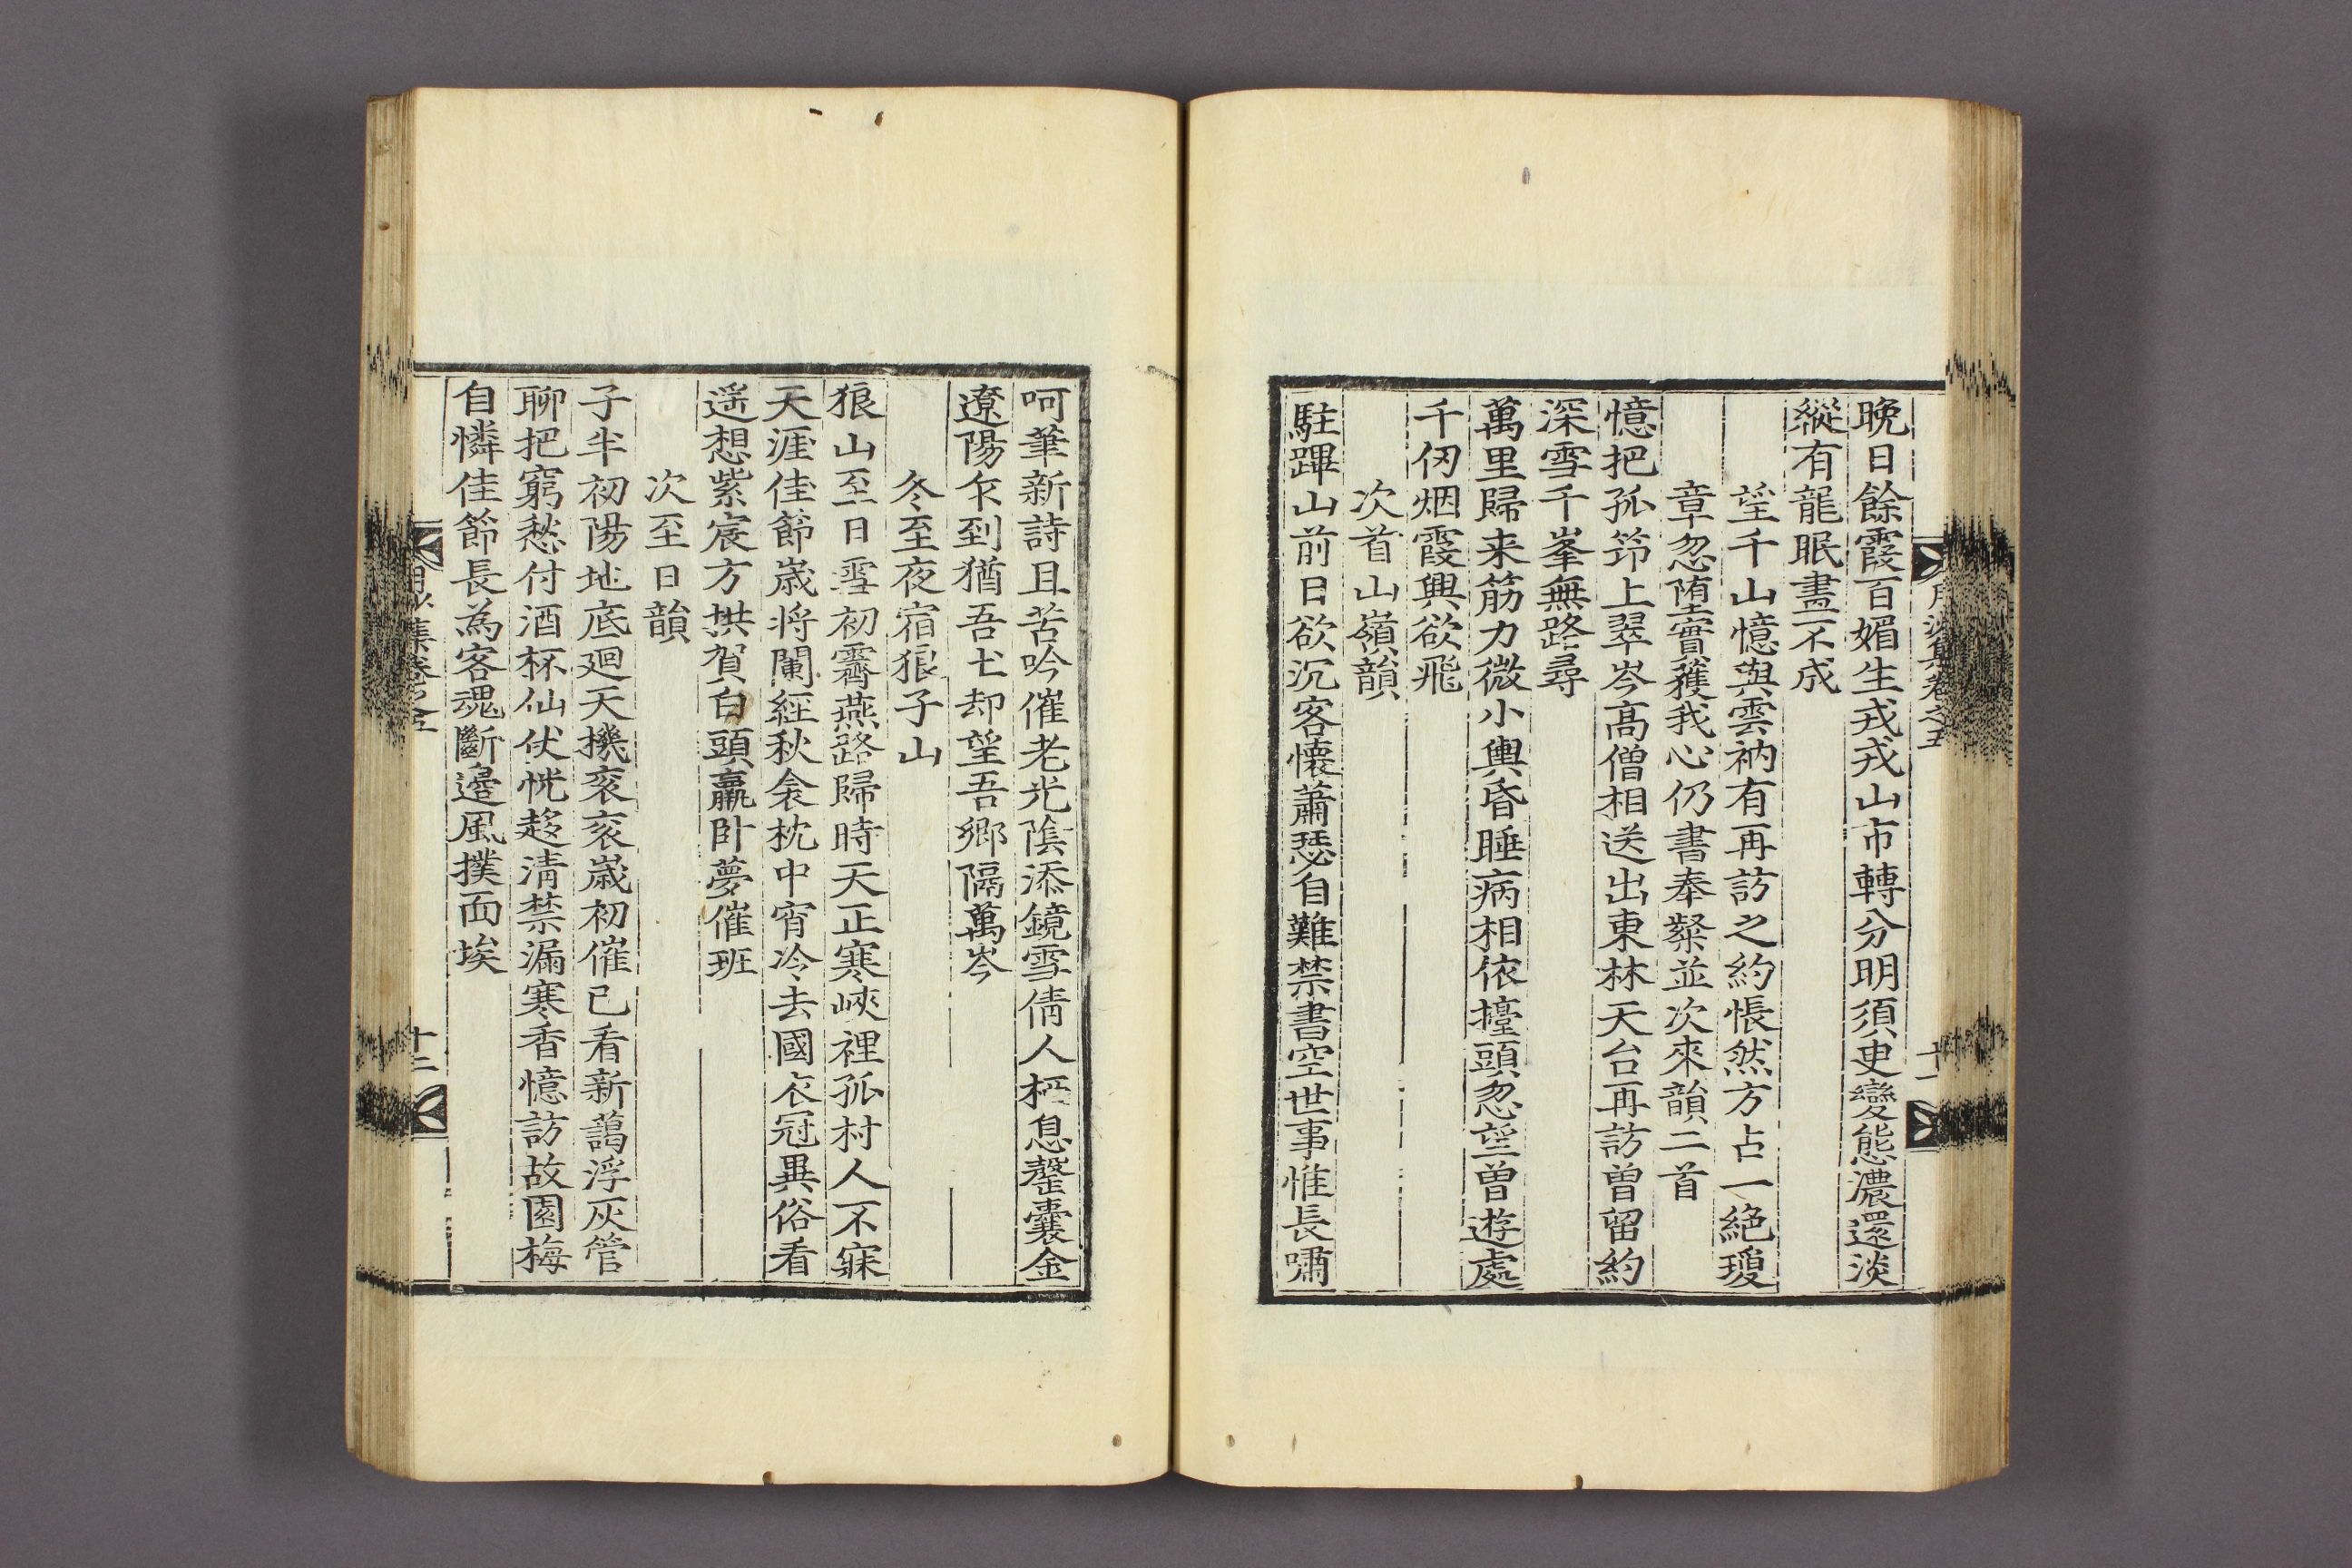 晩日餘霞百媚生戎戎山市轉分明須臾變態濃還淡
縱有龍眠畫不成
望千山憶與雲衲有再訪之約悵然方占一絶瓊
章忽堕實獲我心仍書奉粲並次來韻二首
憶把孤笻上翠岑高僧相送出東林天台再訪曾留約
深雪千峯無路尋
萬里歸来筋力微小輿昏睡病相依擡頭忽望曽遊處
千仞烟霞興欲飛
次首山嶺韻
駐蹕山前日欲沉客懷蕭瑟自難禁書空世事惟長嘯
呵筆新詩且苦吟催老光陰添鏡雪倩人栖息罄囊金
遼陽乍到猶吾土却望吾鄉隔萬岑
冬至夜宿狼子山
狼山至日雪初霽燕路歸時天正寒峽裡孤村人不寐
天涯佳節歲将闌經秋衾枕中宵冷去國衣冠異俗看
遥想紫宸方拱賀白頭羸卧夢催班
次至日韻
子半初陽地底廻天機衮衮歲初催已看新藹浮灰管
聊把窮愁付酒杯仙仗恍趍清禁漏寒香憶訪故園梅
自憐佳節長為客魂斷邉風撲面埃
集卷之五
十二